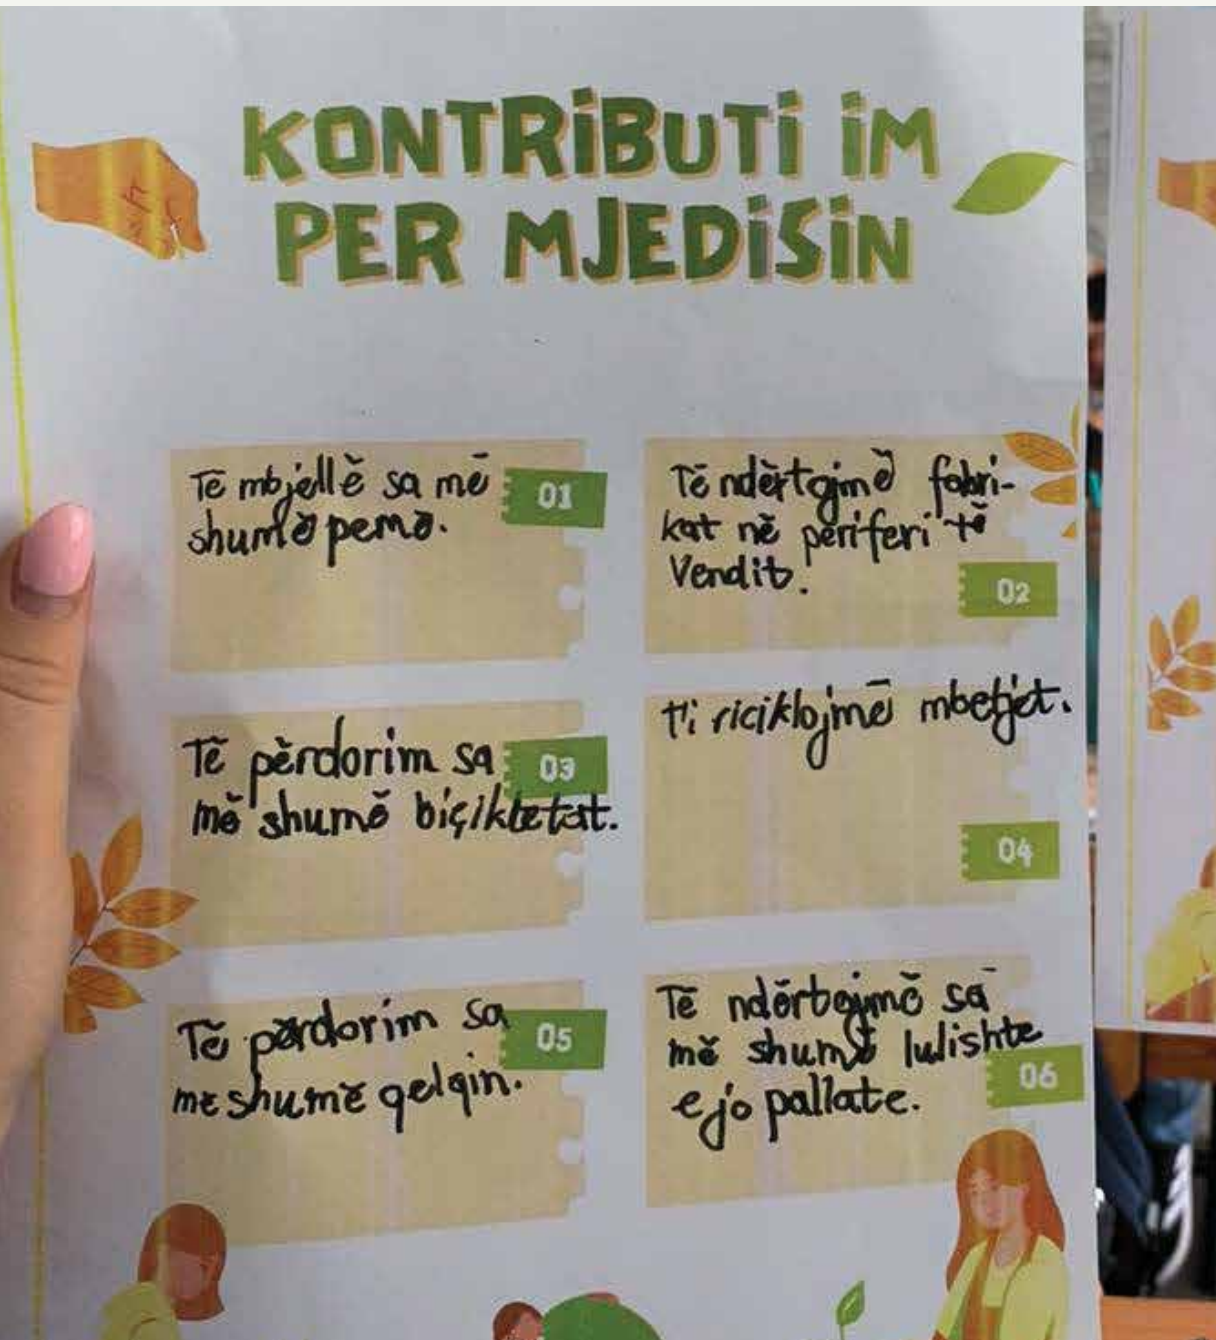 KONTRIBUTI IM
PER MJEDISIN
Të mbjellë sa më
shumë pemë.
01
Të ndërtojmë fabri-
kat në periferi të
Vendit.
02
Të përdorim sa
më shumë biçikletat.
03
t'i riciklojmë mbetjet.
04
Të përdorim sa
me shumë qelqin.
05
Të ndërtojmë sa
më shumë lulishte
e jo pallate.
06